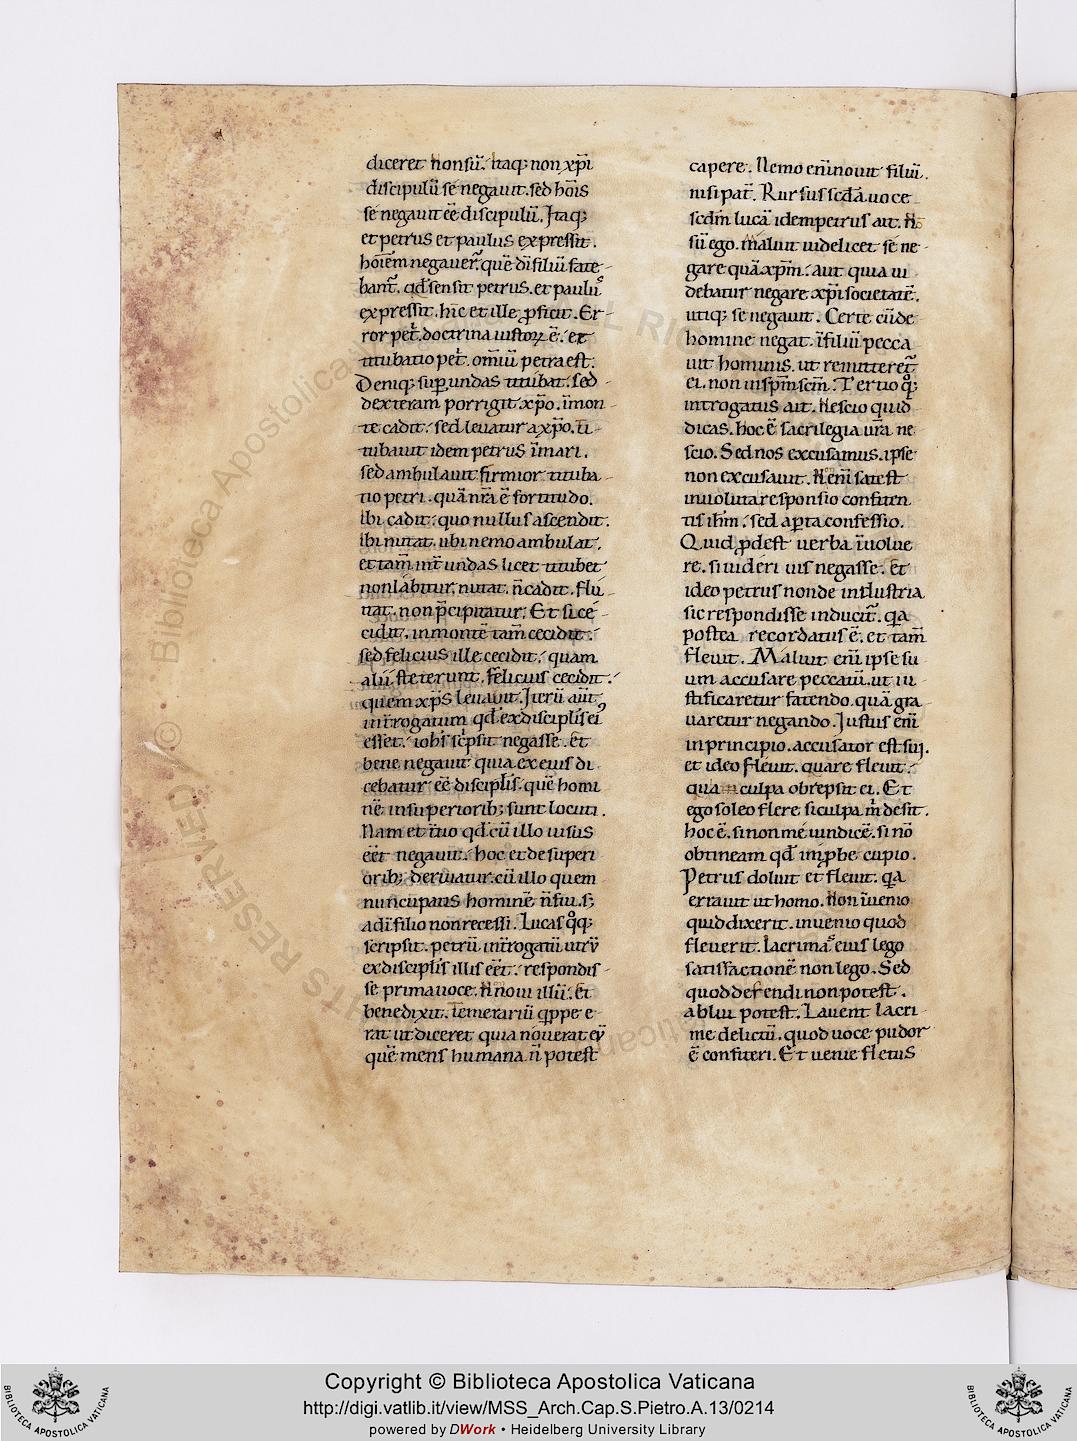 diceret non sū. Itaq; non xp̄i
discipulū se negauit. sed hoīs
se negauit eē discipulū. Itaq;
et petrus et paulus expressit.
hoīem negauer̄. quē dī filiū fate-
bant̄. qd̄ sensit petrus. et paulus
expressit. hīc et ille ꝓficit. Er-
ror pet̄. doctrina iustoꝝ ē. et
titubatio pet̄. omiū petra est.
Deniq; suꝑ undas titubat. sed
dexteram porrigit xp̄o. ī mon-
te cadit. sed leuatur a xp̄o. Ti-
tubauit idem petrus ī mari.
sed ambulauit firmior tituba-
tio petri. quā nrā ē fortitudo.
Ibi cadit. quo nullus ascendit.
ibi nutat. ubi nemo ambulat.
et tam̄ int̄ undas licet titubet
non labitur. nutat. n̄ cadit. flu-
tat. non p̄cipitatur. Et si ce-
cidit. in monte tam̄ cecidit.
sed felicius ille cecidit. quam
alii steterunt. felicius cecidit.
quem xp̄s leuauit. Iterū aūt
introgatum qd̄ ex discipl̄is ei
esset. ioh̄s sc̄psit negasse. et
bene negauit quia ex eius di
cebatur eē discipl̄is. quē homi
nē in superiorib; sunt locuti.
Nam et t̄tio qd̄ cū illo uisus
eēt negauit. hoc et de superi
orib; deriuatur. cū illo quem
nuncupatis hominē n̄ fui. s;
a dī filio non recessi. Lucas qͦq;
scripsit. petrū int̄rogatū utrū
ex discipl̄is illis eēt. respondis-
se prima uoce. N̄ noui illū. Et
benedixit. Temerariū q̄ppe e
rat ut diceret quia nouerat eū
quē mens humana n̄ potest
capere. Nemo enī nouit filiū.
nisi pat̄. Rursus scd̄a uoce
scdm̄ lucā idem petrus ait. N̄
sū ego. maluit uidelicet se ne-
gare quā xp̄m. aut quia ui
debatur negare xp̄i societatē.
utiq; se negauit. Certe cū de
homine negat. ī filiū pecca
uit hominis. ut remitteret̄
ei. non in sp̄m sc̄m. Tertio qͦq;
introgatus ait. Nescio quid
dicas. hoc ē sacrilegia urā ne-
scio. Sed nos excusamus. ipse
non excusauit. N̄ enī sat est
inuoluta responsio confiten
tis ih̄m. sed aꝑta confessio.
Quid ꝓdest uerba īuolue
re. si uideri uis negasse. et
ideo petrus non de industria
sic respondisse inducit̄. q̄a
postea recordatus ē. et tam̄
fleuit. Maluit enī ipse su
um accusare peccatū. ut iu
stificaretur fatendo. quā gra
uaretur negando. Iustus enī
in principio. accusator est sui.
et ideo fleuit. quare fleuit.
quia culpa obrepsit ei. Et
ego soleo flere si culpa m̄ desit.
hoc ē. si non me uindicē. si nō
obtineam qd̄ imꝓbe cupio.
Petrus doluit et fleuit. q̄a
errauit ut homo. Non īuenio
quid dixerit. inuenio quod
fleuerit. lacrimas eius lego
satisfactionē non lego. Sed
quod defendi non potest.
ablui potest. Lauent lacri
me delictū. quod uoce pudor
ē confiteri. Et uenie fletus
Copyright © Biblioteca Apostolica Vaticana
http://digi.vatlib.it/view/MSS_Arch.Cap.S.Pietro.A.13/0214
powered by DWork • Heidelberg University Library